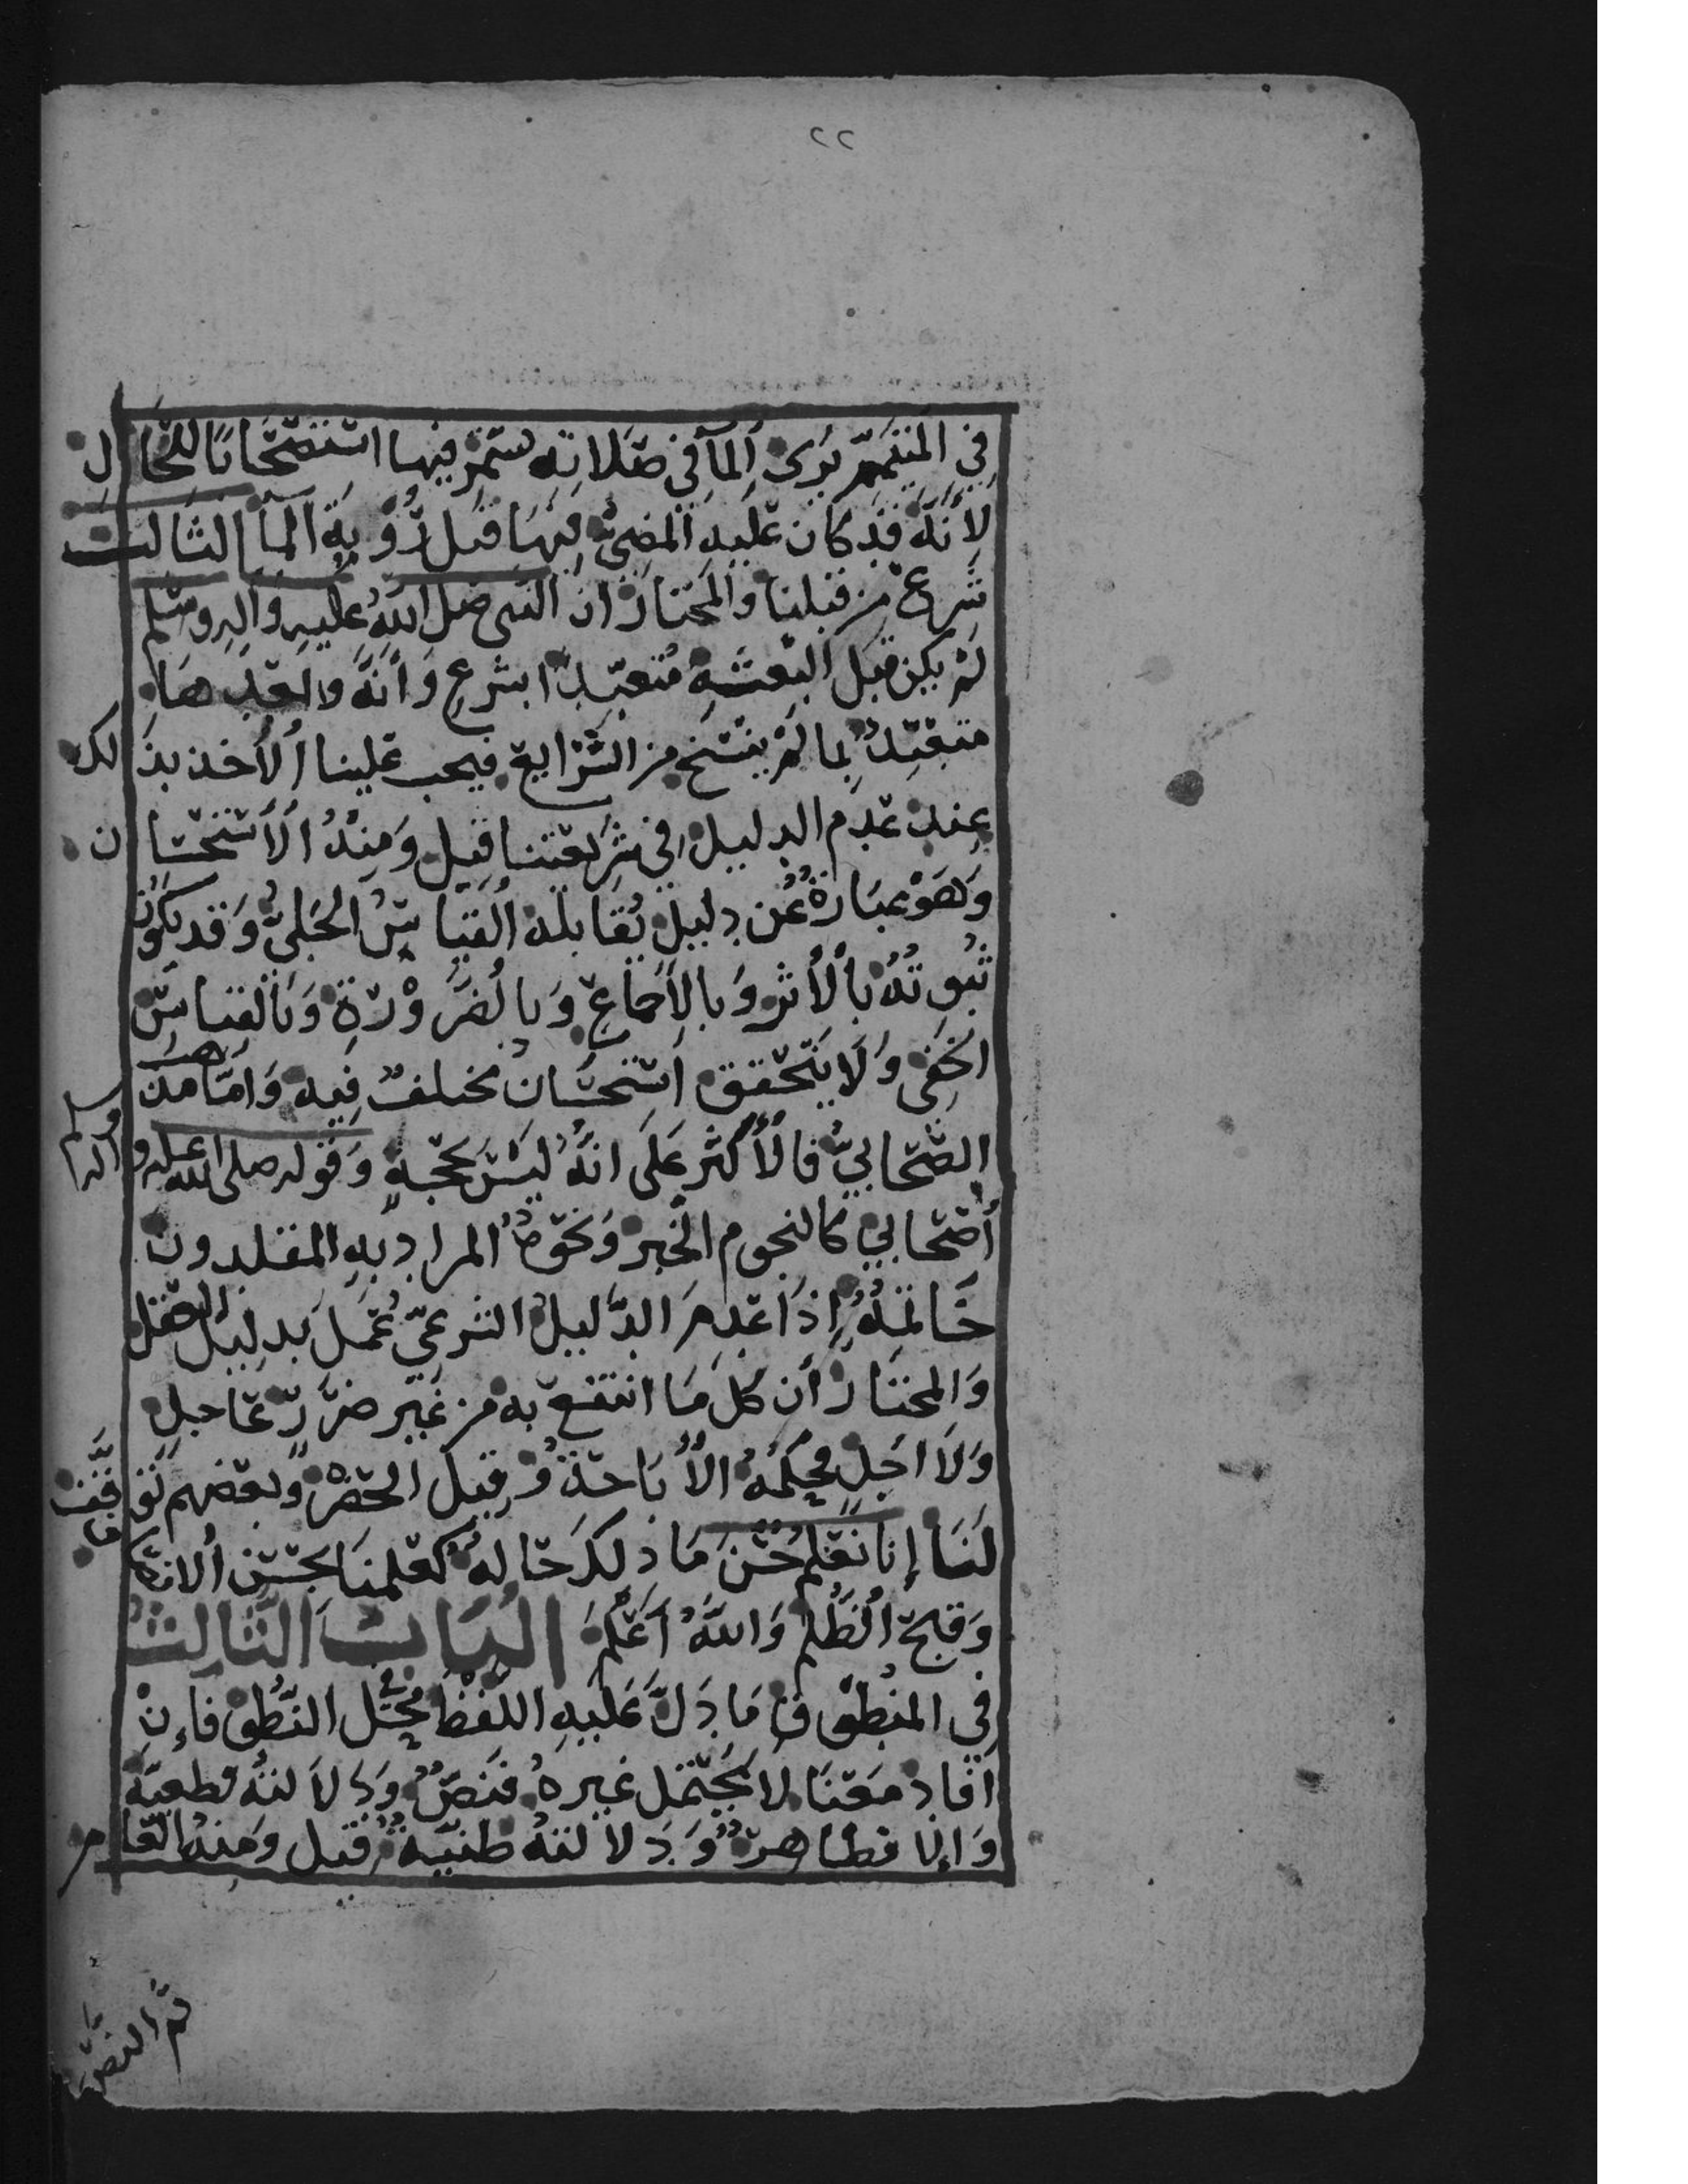 ٢٢
في المتيمم يرى المآ في صلاته يستمر فيها استصحابا للحال
لأنه قد كان عليه المضي فيها قبل رؤية المآ الثالث
شرع من قبلنا والمختار ان النبي صلى الله عليه وآله وسلم
لم يكن قبل البعثة متعبدا بشرع وأنه بعدها
متعبد بما لم ينسخ من الشرايع فيجب علينا الأخذ بذلك
عند عدم الدليل في شريعتنا قيل ومنه الأستحسان
وهو عبارة عن دليل يقابله القياس الجلي وقد يكون
ثبوته بالأثر وبالأجماع وبالضرورة وبالقياس
الخفي ولا يتحقق استحسان مختلف فيه وأما مذهب
الصحابي فالأكثر على انه ليس بحجة وقوله صلى الله عليه وآله وسلم
أصحابي كالنجوم الخبر ونحوه المراد به المقلدون
خاتمة إذا عدم الدليل الشرعي عمل بدليل العقل
والمختار أن كل ما انتفع به من غير ضرر عاجل
ولا اجل فحكمه الأباحة وقيل الحضر وبعضهم توقف
لنا إنا نعلم حسن ما ذلك حاله كعلمنا بحسن الانصاف
وقبح الظلم والله أعلم الباب الثالث
في المنطوق ما دل عليه اللفظ محل النطق فإن
افاد معنا لا يحتمل غيره فنص ودلالته قطعية
وإلا فظاهر ودلالته ظنية قيل ومنه العام
ثم النص